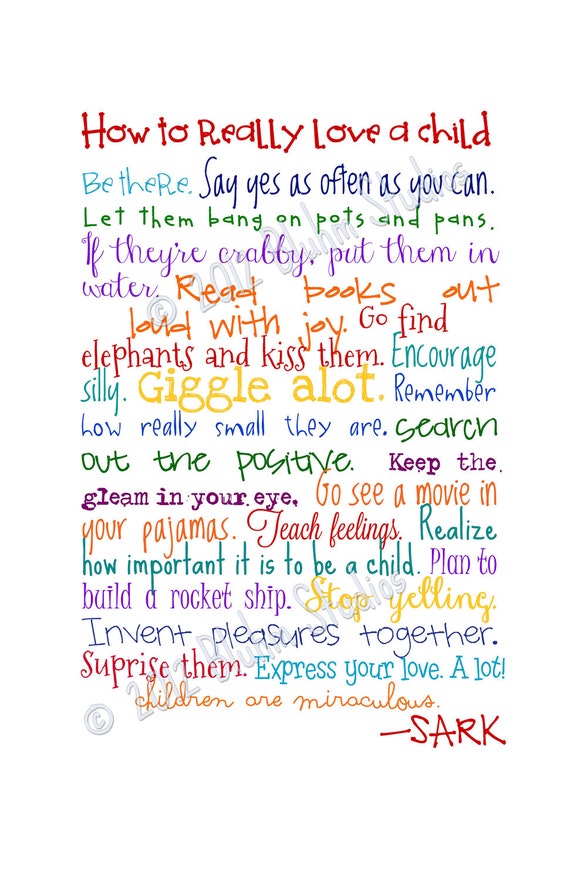 How to Really Love a child
Be theRe. Say yes as often as you can.
Let them bang on pots and pans.
If they're crabby, put them in
water. Read books out
loud with joy. Go find
elephants and kiss them. Encourage
silly. Giggle alot. Remember
how really small they are. Search
out the positive. Keep the
gleam in your eye. Go see a movie in
your pajamas. Teach feelings. Realize
how important it is to be a child. Plan to
build a rocket ship. Stop yelling.
Invent pleasures together.
Suprise them. Express your love. A lot!
children are miraculous.
—SARK
© 2012 Bluhm Studios
© 2012 Bluhm Studios